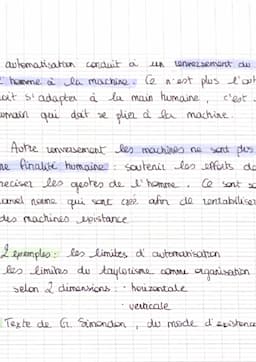 automatisation conduit à un renversement du
l'homme à la machine. Ce n'est plus l'out
oit s'adapter à la main humaine, c'est
umain qui doit se plier à la machine.
Autre renversement les machines ne sont plus
ne finalité humaine : soutenir les efforts de
réciser les gestes de l'homme. Ce sont
qui sont afin de rentabiliser
des machines existance
2 exemples : les limites d'automatisation
les limites du taylorisme comme organisation
selon 2 dimensions : · horizontale
· verticale
Texte de G. Simondon, du mode d'existence